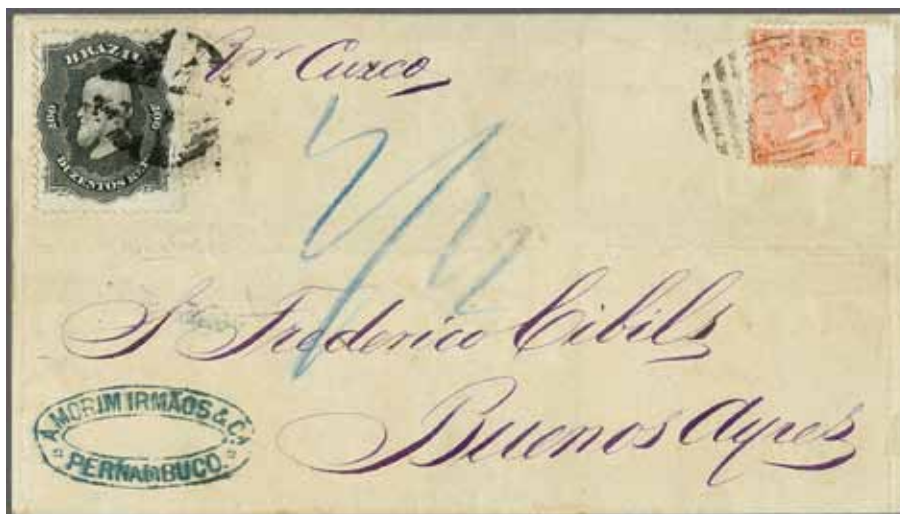 BRAZIL
200 200
DUZENTOS REIS
Per Cuzco
F G
G F
Sr Frederico Cibils
Buenos Ayres
AMORIM IRMÃOS & Cª
PERNAMBUCO.